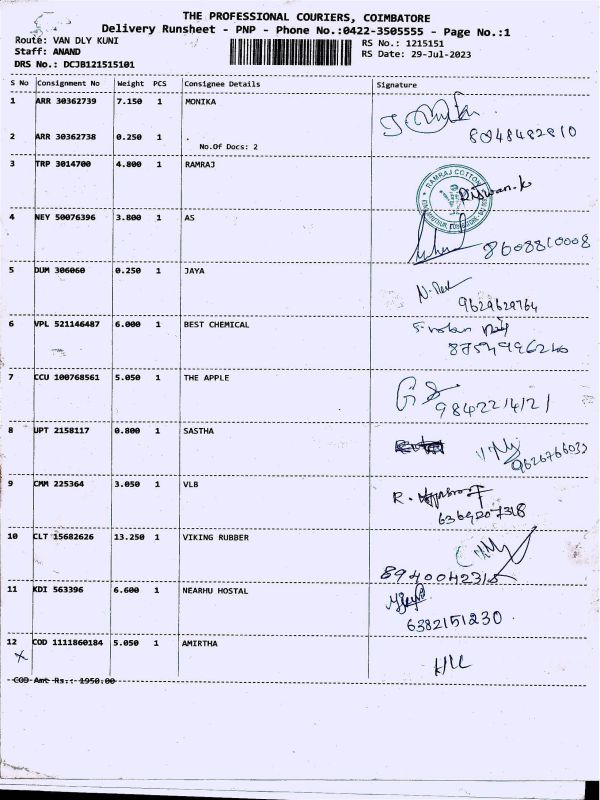 THE PROFESSIONAL COURIERS, COIMBATORE
Delivery Runsheet - PNP - Phone No.:0422-3505555 - Page No.:1
Route: VAN DLY KUNI
RS No.: 1215151
Staff: ANAND
RS Date: 29-Jul-2023
DRS No.: DCJB121515101
S No Consignment No Weight PCS Consignee Details Signature
1 ARR 30362739 7.150 1 MONIKA
2 ARR 30362738 0.250 1 .
8048482810
No.Of Docs: 2
3 TRP 3014700 4.800 1 RAMRAJ
RAMRAJ COTTON
4 NEY 50076396 3.800 1 AS
8608810008
5 DUM 306060 0.250 1 JAYA
9629629764
6 VPL 521146487 6.000 1 BEST CHEMICAL
8754996240
7 CCU 100768561 5.050 1 THE APPLE
9842214121
8 UPT 2158117 0.800 1 SASTHA
9626766033
9 CMM 225364 3.050 1 VLB
6369207318
10 CLT 15682626 13.250 1 VIKING RUBBER
8940042315
11 KDI 563396 6.600 1 NEARHU HOSTAL
6382151230
12 COD 1111860184 5.050 1 AMIRTHA
X
COD Amt Rs.: 1950.00